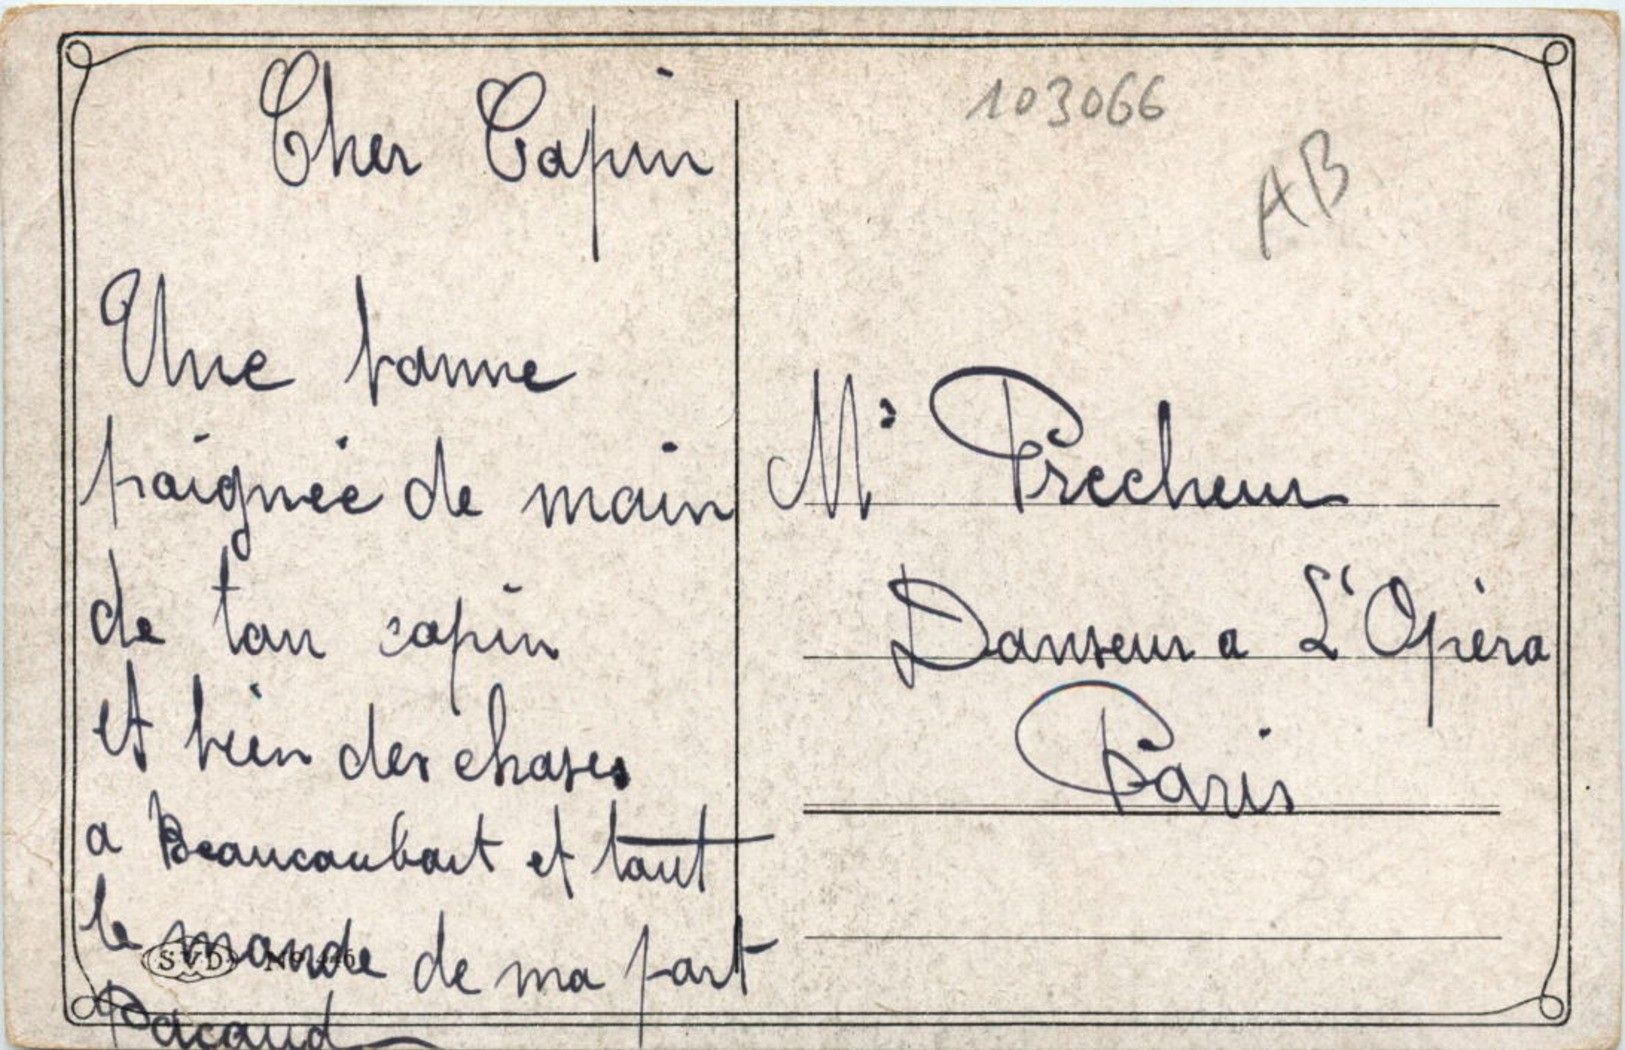 Cher Copin
Une bonne
poignée de main
de ton copin
et bien des choses
a Beaucoubart et tout
le monde de ma part
Pacaud
103066
AB
Mr Precheur
Danseur a L'Opéra
Paris
SVD